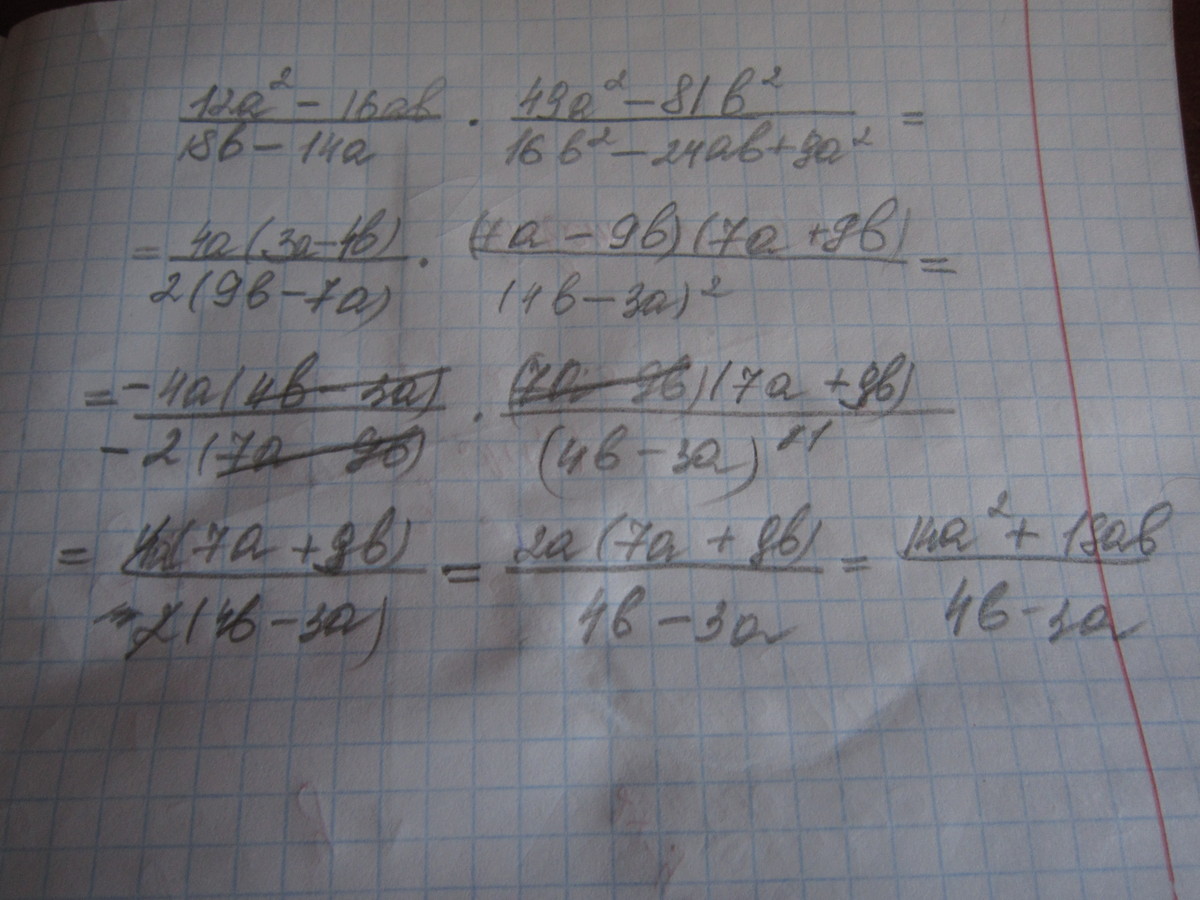 12a² - 16ab / 18b - 14a · 49a² - 81b² / 16b² - 24ab + 9a² =
= 4a(3a - 4b) / 2(9b - 7a) · (7a - 9b)(7a + 9b) / (4b - 3a)² =
= -4a(4b - 3a) / -2(7a - 9b) · (7a - 9b)(7a + 9b) / (4b - 3a)
= 4a(7a + 9b) / 2(4b - 3a) = 2a(7a + 9b) / 4b - 3a = 14a² + 18ab / 4b - 3a